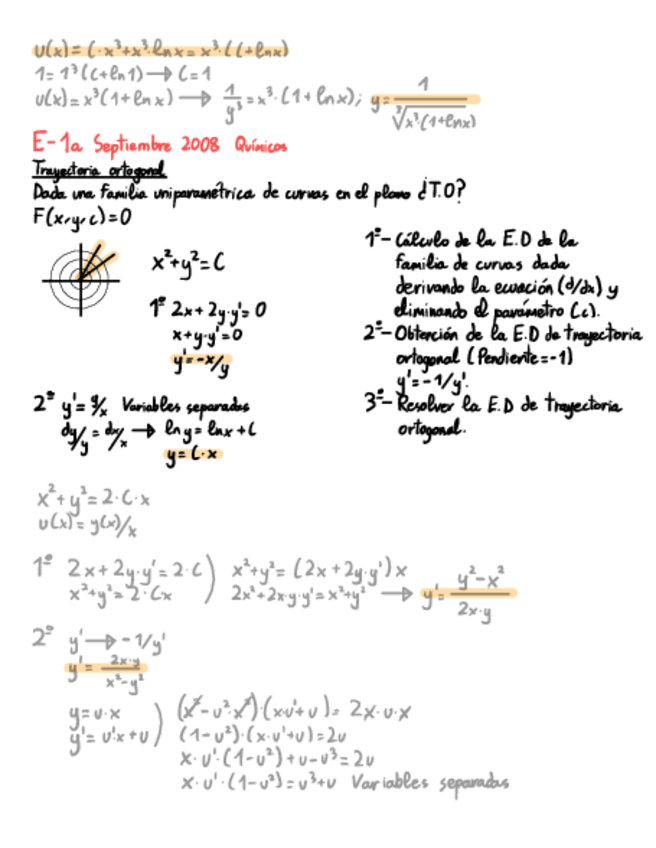 u(x) = C·x³+x³·lnx = x³·(C+lnx)
1 = 1³(C+ln1) → C=1
u(x) = x³(1+lnx) → 1/y³ = x³·(1+lnx); y = 1/∛(x³·(1+lnx))
E-1a Septiembre 2008 Químicos
Trayectoria ortogonal
Dada una familia uniparamétrica de curvas en el plano ¿T.O?
F(x,y,c)=0
x²+y²=C
1º 2x+2y·y'=0
x+y·y'=0
y'=-x/y
2º y'=y/x Variables separadas
dy/y = dx/x → lny = lnx+C
y=C·x
1º- Cálculo de la E.D de la
familia de curvas dada
derivando la ecuación (d/dx) y
eliminando el parámetro (c).
2º- Obtención de la E.D de trayectoria
ortogonal (Pendiente=-1)
y'=-1/y'.
3º- Resolver la E.D de Trayectoria
ortogonal.
x²+y²=2·C·x
u(x)=y(x)/x
1º 2x+2y·y'=2·C ) x²+y²=(2x+2y·y')x
x²+y²=2·Cx ) 2x²+2x·y·y'=x²+y² → y'=(y²-x²)/(2x·y)
2º y' → -1/y'
y'=(2x·y)/(x²-y²)
y=u·x ) (x²-u²·x²)·(x·u'+u)=2x·u·x
y'=u'x+u ) (1-u²)·(x·u'+u)=2u
x·u'·(1-u²)+u-u³=2u
x·u'·(1-u²)=u³+u Variables separadas